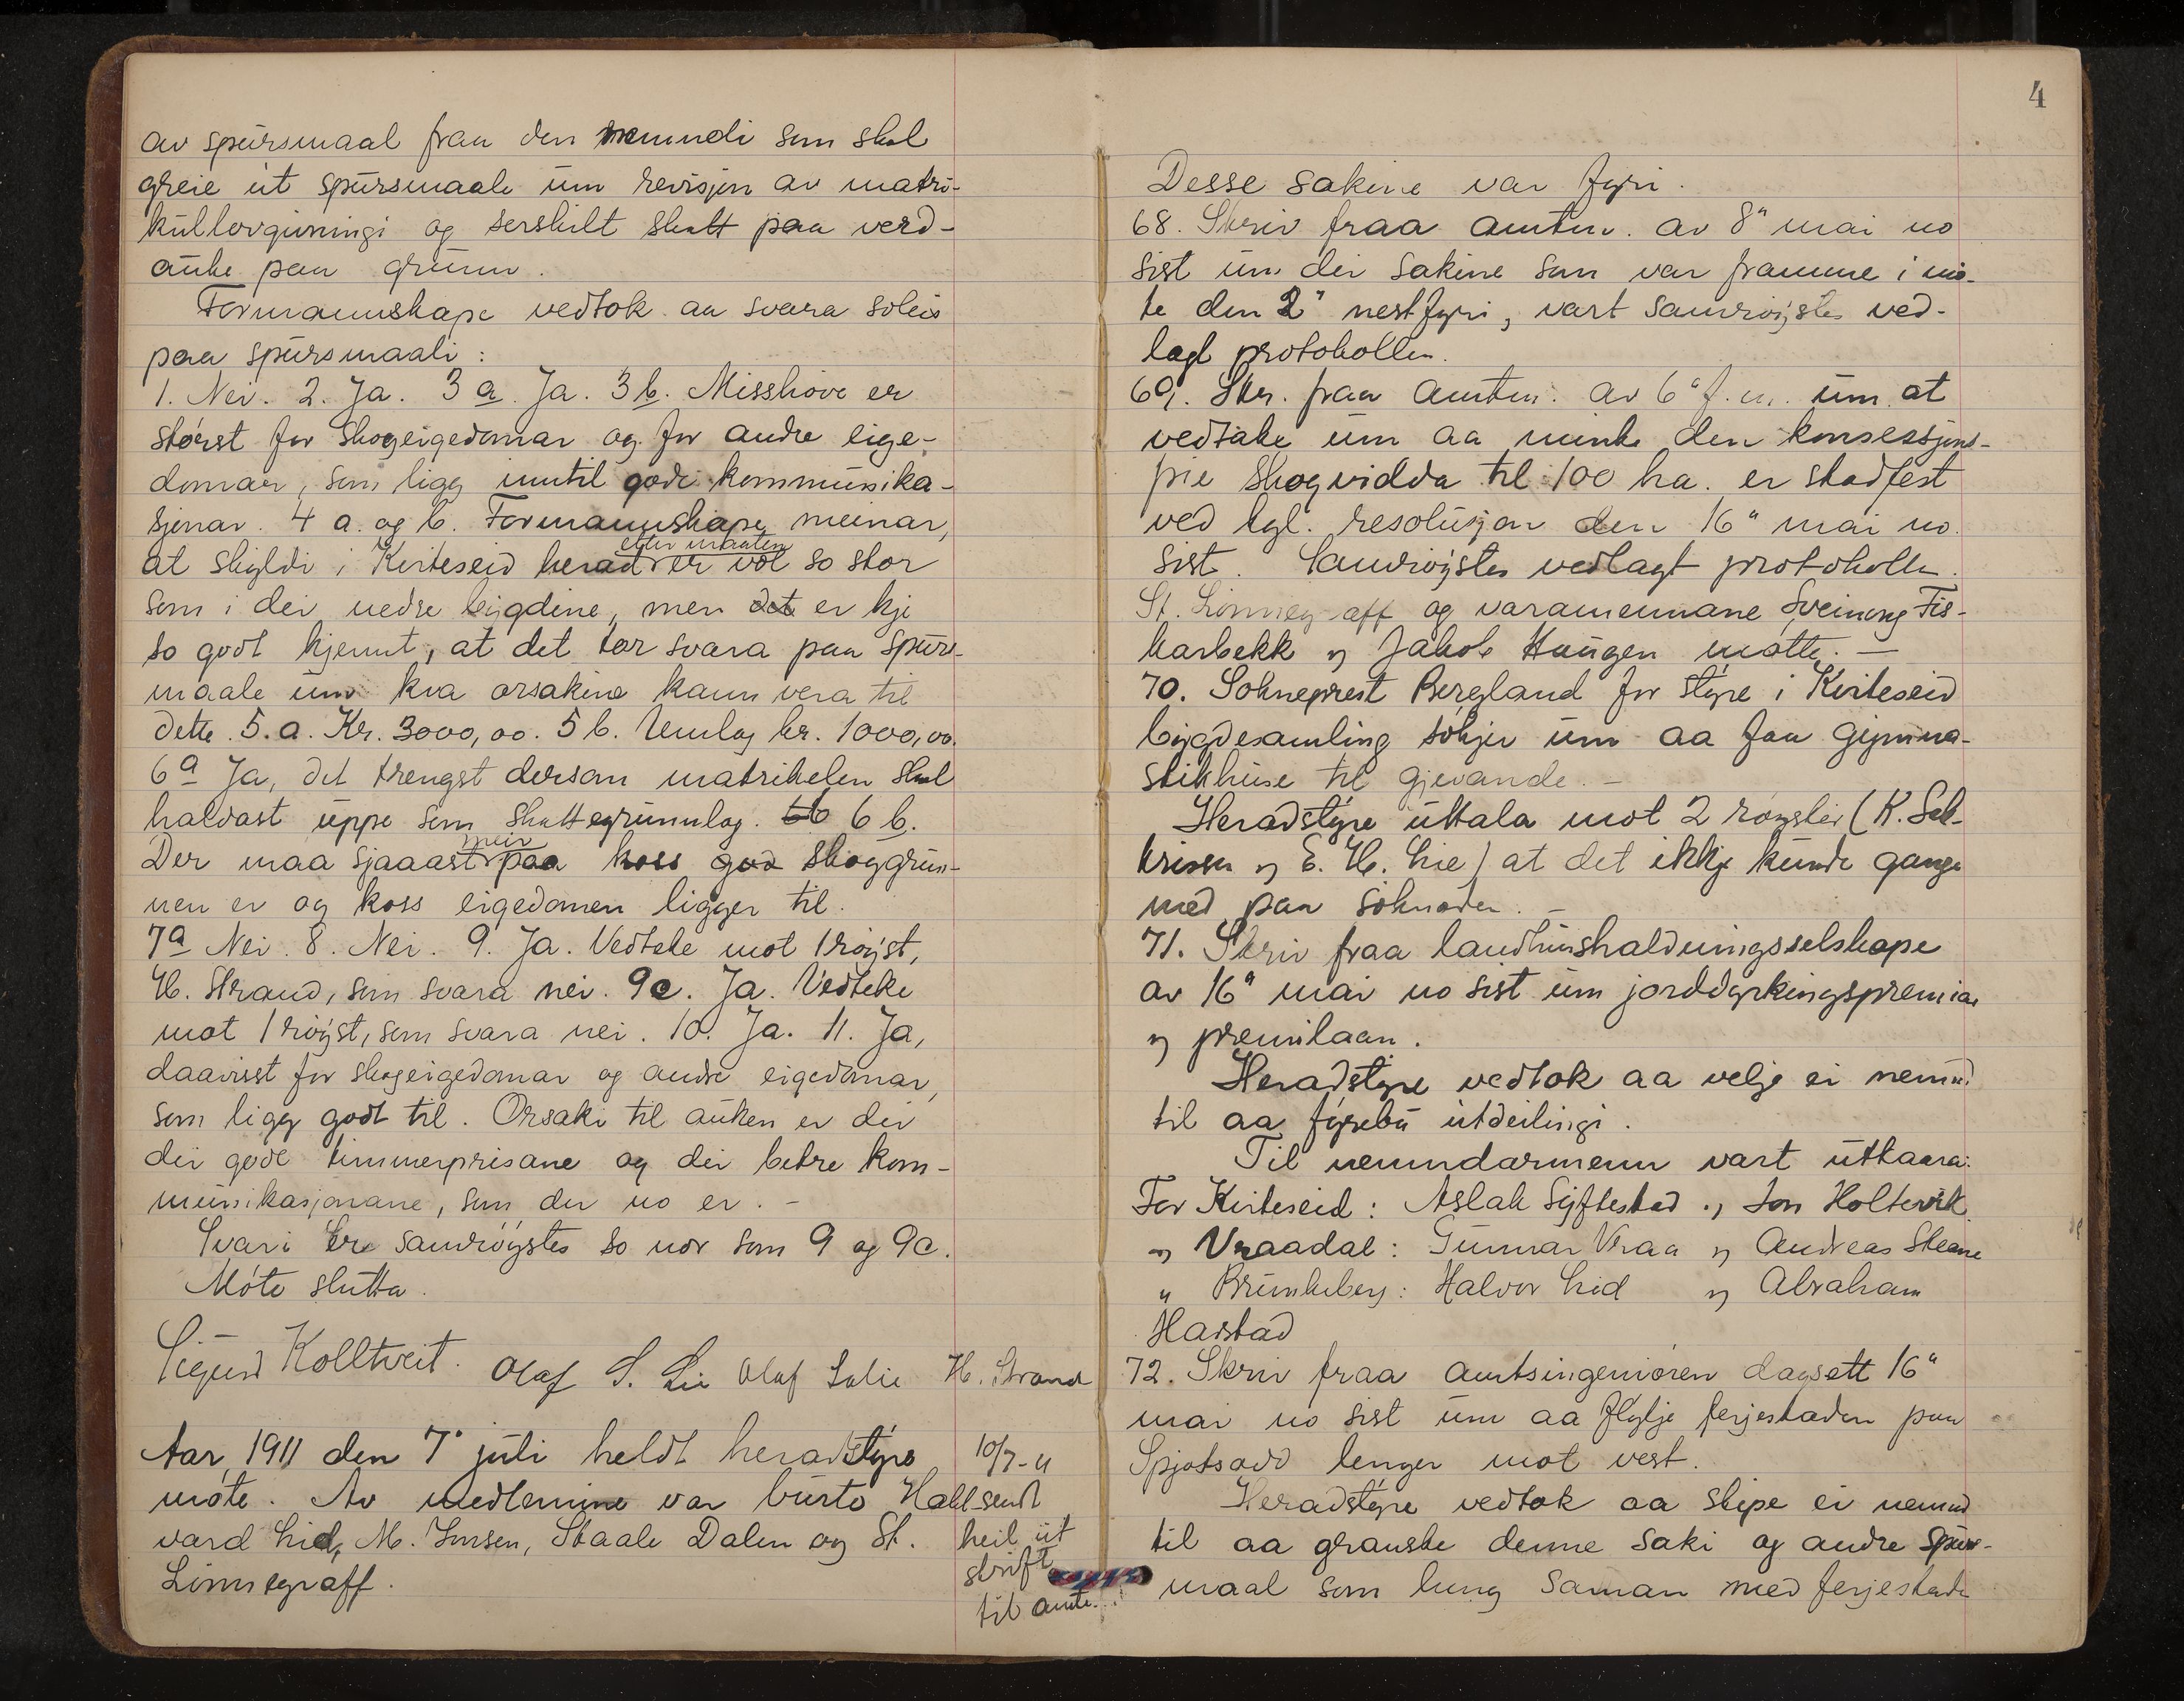 av spursmaal fraa den nemndi som skal
greie ut spursmaale um revisjon av matri-
kullovgivningi og serskilt skatt paa verd-
auke paa grunn.
Formannskape vedtok aa svara soleis
paa spursmaali:
1. Nei. 2. Ja. 3 a. Ja. 3 b. Misshøve er
størst for skogeigedomar og for andre eige-
domar, som ligg inntil gode kommunika-
sjonar. 4 a. og b. Formannskape meinar,
at skyldi i Kviteseid herad etter maaten er vol so stor
som i dei nedre bygdine, men det er kje
so godt kjennt, at det tor svara paa spurs-
maale um kva orsakine kann vera til
dette. 5. a. Kr. 3000,00. 5 b. Umlag kr. 1000,00.
6 a Ja, det trengst dersom matrikelen skal
haldast uppe som skattegrunnlag. 6 b.
Der maa sjaaast meir paa koss god skoggrun-
nen er og koss eigedomen ligger til.
7 a Nei. 8. Nei. 9. Ja. Vedteke mot 1 røyst,
H. Strand, som svara nei. 9 c. Ja. Vedteke
mot 1 røyst, som svara nei. 10. Ja. 11. Ja,
daavisst for skogeigedomar og andre eigedomar,
som ligg godt til. Orsaki til auken er dei
dei gode timmerprisane og dei betre kom-
munikasjonane, som der no er. -
Svari er samrøystes so nær som 9 og 9 c.
Møte slutta.
Sigurd Kolltveit. Olaf S. Lie Olaf Lalie H. Strand
Aar 1911 den 7' juli heldt heradstyre
møte. Av medlemine var burte Hall-
vard Lid, M. Jensen, Staale Dalen og St.
Linnegraff.
10/7-11
sendt
heil ut
skrift
til amtm.
4
Desse sakine var fyri.
68. Skriv fraa amtm. av 8" mai no
sist um dei sakine som var framme i mø-
te den 2" nestfyri, vart samrøystes ved-
lagt protokollen.
69. Skr. fraa amtm. av 6" f. m. um at
vedtake um aa minke den konsesjons-
frie skogvidda til 100 ha. er stadfest
ved kgl. resolusjon den 16" mai no
sist. Samrøystes vedlagt protokollen.
St. Linnegraff og varamennane Sveinung Fis-
karbekk og Jakob Haugen møtte. —
70. Sokneprest Bergland for styre i Kviteseid
bygdesamling søkjer um aa faa gymna-
stikhuse til gjevande. -
Heradstyre uttala mot 2 røyster (K. Sal-
krissen og E. H. Lie) at det ikkje kunde gange
med paa søknaden. -
71. Skriv fraa landhushaldningsselskape
av 16" mai no sist um jorddyrkingspremiar
og premilaan.
Heradstyre vedtok aa velje ei nemnd
til aa fyrebu utdeilingi.
Til nemndarmenn vart utkaara:
For Kviteseid: Aslak Syftestad og Jon Holtevik.
" Vraadal: Gunnar Vraa og Andreas Skeane
" Brunkeberg: Halvor Lid og Abraham
Haistad
72. Skriv fraa amtsingeniøren dagsett 16"
mai no sist um aa flytje ferjestaden paa
Spjotsodd lenger mot vest.
Heradstyre vedtok aa skipe ei nemnd
til aa granske denne saki og andre spurs-
maal som heng saman med ferjestade